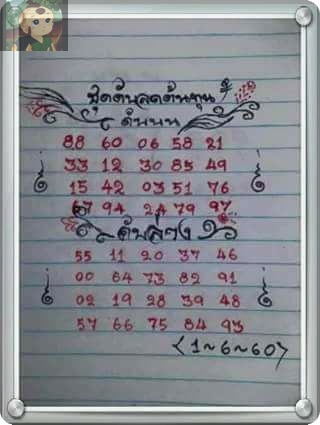 ชุดดับลดต้นทุน
ดับบน
88 60 06 58 21
33 12 30 85 49
15 42 03 51 76
67 94 24 79 97
ดับล่าง
55 11 20 37 46
00 64 73 82 91
02 19 28 39 48
57 66 75 84 93
(1~6~60)